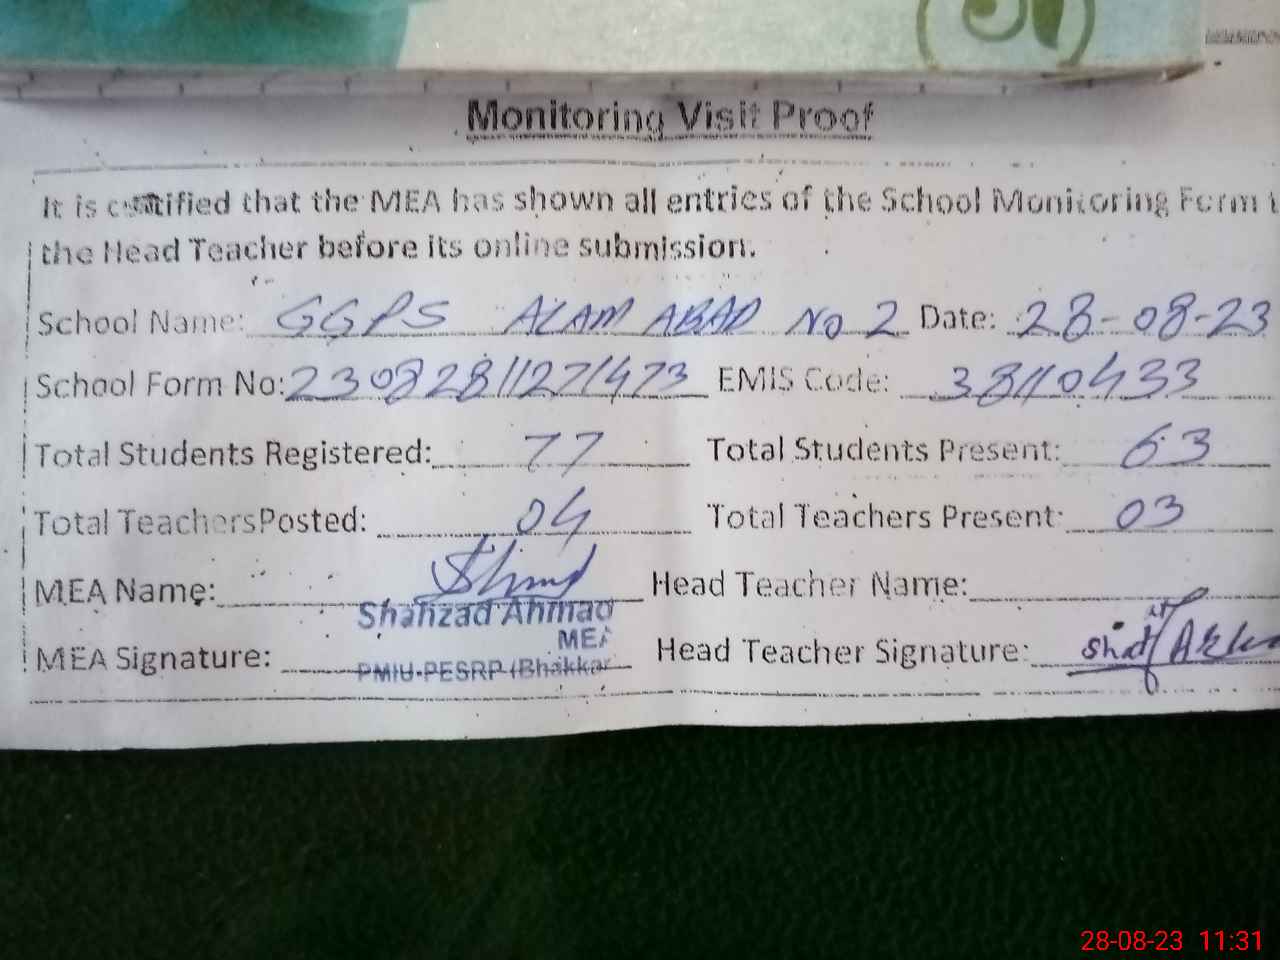 Monitoring Visit Proof
It is certified that the MEA has shown all entries of the School Monitoring Form t
the Head Teacher before its online submission.
School Name: GGPS ALAM ABAD No 2 Date: 28-08-23
School Form No: 23082811271473 EMIS Code: 38110433
Total Students Registered: 77 Total Students Present: 63
Total TeachersPosted: 04 Total Teachers Present: 03
MEA Name: Head Teacher Name:
Shahzad Ahmad
MEA
MEA Signature: PMIU-PESRP (Bhakkar Head Teacher Signature:
28-08-23 11:31